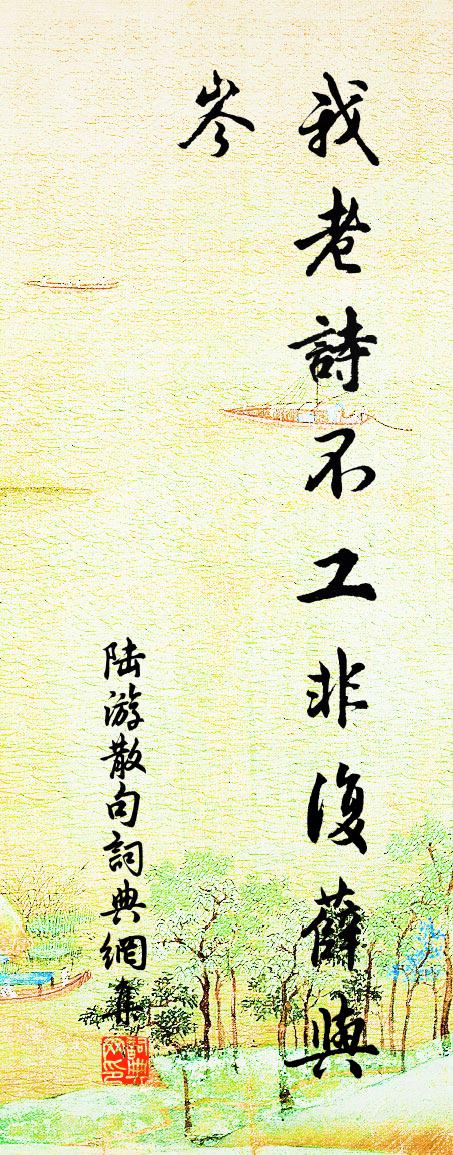 我老詩不工非復薛與
岑
陆游散句詞典網集